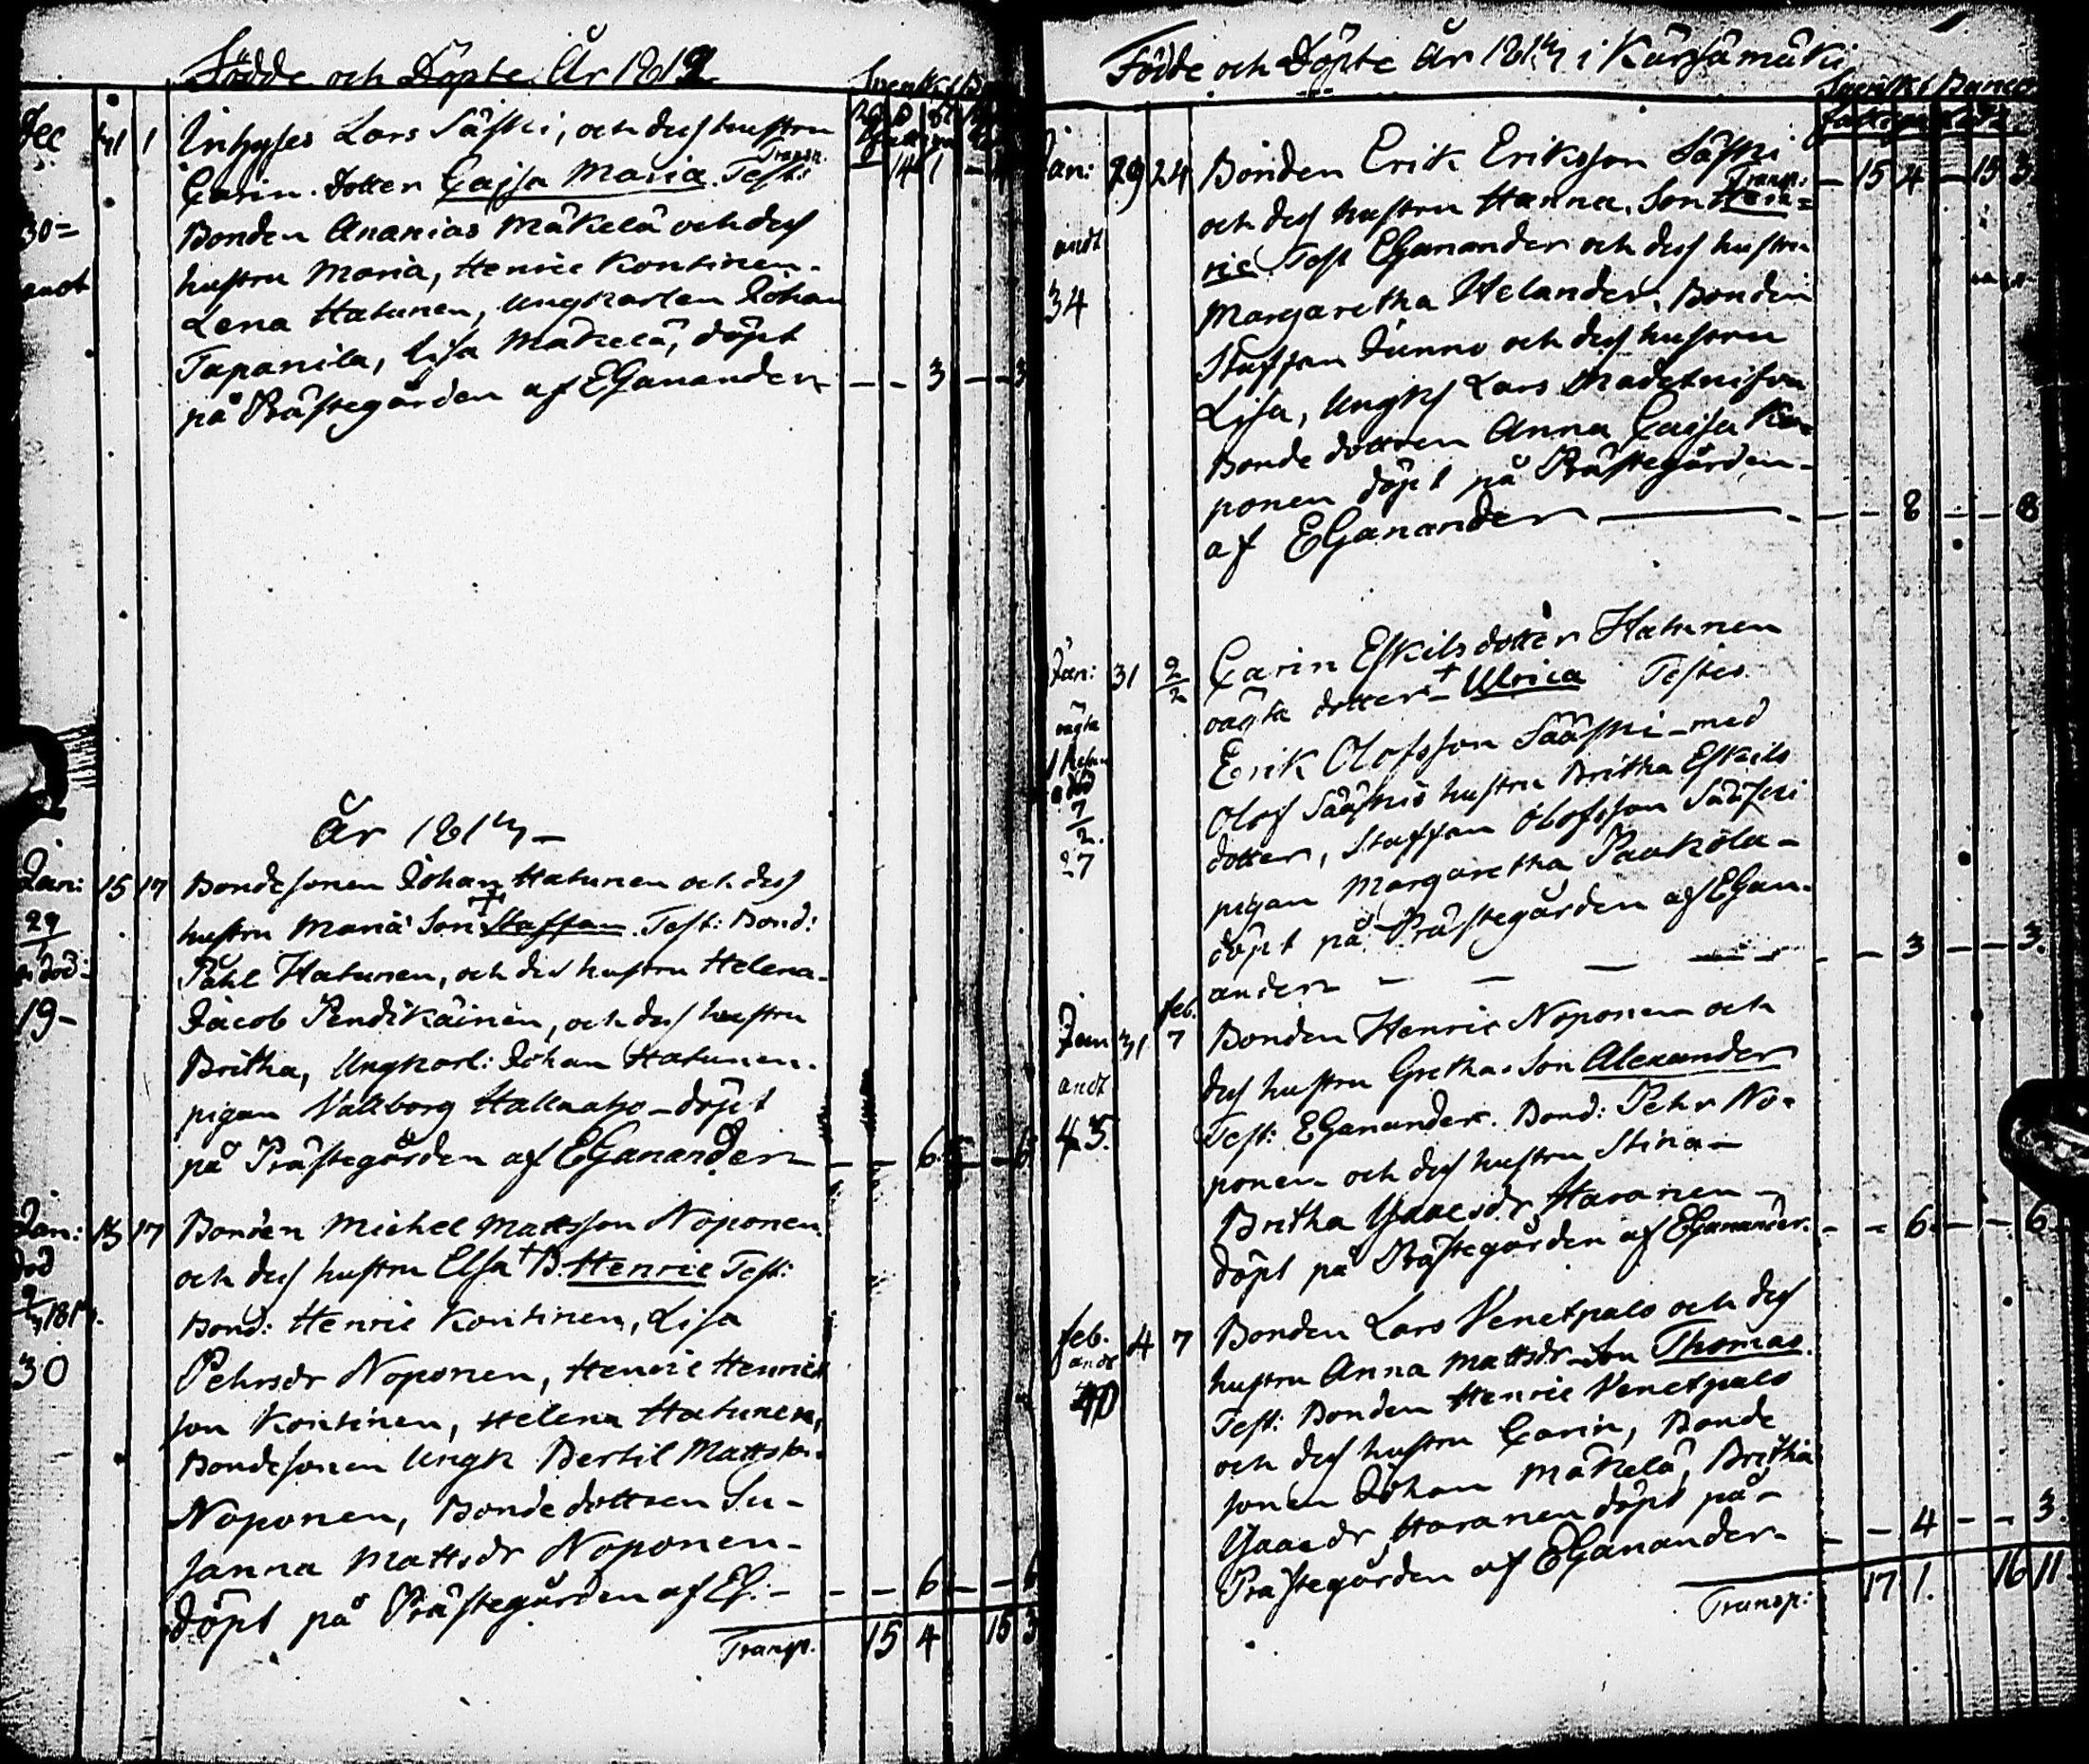 Födde och Döpte År 1812
Svenskt B
Dec 31 1 Inhyses Lars Säski, och dess hustru
Carin. Dotter Cajsa Maria. Test: Transp. 14 1
Bonden Ananias Mäkelä och dess
30
hustru Maria, Henric Kontinen.
Lena Hatunen, Ungkarlen Johan
Tapanila, Lisa Mäkelä, döpt
på Prästegården af EGanander — — 3 — — 3
År 1813 —
Jan: 15 17 Bondesonen Johan Hatunen och dess
29/1 hustru Maria Son + Staffan. Test: Bond:
död: Påhl Hatunen, och des hustru Helena.
19 — Jacob Pendikäinen, och dess hustru
Britha, Ungkarl: Johan Hatunen.
pigan Vallborg Hallaaho — döpt
på Prästegården af EGanander — — 6 — — 6
Jan: 15 17 Bonden Michel Mattsson Noponen
död och dess hustru Elsa + B. Henric Test:
Bond: Henric Kontinen, Lisa
30 Pehrsdr Noponen, Henric Henrics
son Kontinen, Helena Hatunen,
Bondesonen Ungk Bertil Mattsson
Noponen, Bonde dottren Su-
sanna Mattsdr Noponen —
döpt på Prästegården af EG: — — — 6 — — 6
Transp. 15 4 15 3
Födde och Döpte År 1813 i Kärsämäki
Svenskt Banco
Jan: 29 24 Bonden Erik Eriksson Säski Transp: — 15 4 — 15 3
och dess hustru Hanna. Son Hen=
andt
ric. Test EGanander och dess hustru
34 Margaretha Helander, Bonden
Staffan Junno och dess hustru
Lisa, Ungk Lars Madetnison
Bonde dottren Anna Cajsa No=
ponen döpt på Prästegården —
af EGanander — — — 8 — — 8
Jan: 31 2/2 Carin Eskilsdotter Hatunen
oägta dotter — + Ulrica Testes
oägta
Erik Olofsson Sääski — med
död 7/2. Olof Sääskis hustru Britha Eskils
27 dotter, Staffan Olofsson Sääski
pigan Margaretha Paakola —
döpt på Prästegården af EGan-
ander — — — — 3 — — 3.
Jan 31 feb. 7 Bonden Henric Noponen och
andt dess hustru Gretha. Son Alexander
43. Test: EGanander. Bond: Pehr No=
ponen och dess hustru Stina —
Britha Ysacsdr Haranen —
döpt på Prästegården af EGanander. — — 6. — — 6.
feb. 4 7 Bonden Lars Venetpalo och dess
andt hustru Anna Mattsdr — Son Thomas.
40 Test: Bonden Henric Venetpalo
och dess hustru Carin, Bonde
sonen Johan Mäkelä, Britha
Ysacsdr Haranen döpt på —
Prästegården af EGanander — — — 4 — — 3.
Transp: 17 1. 16 11.